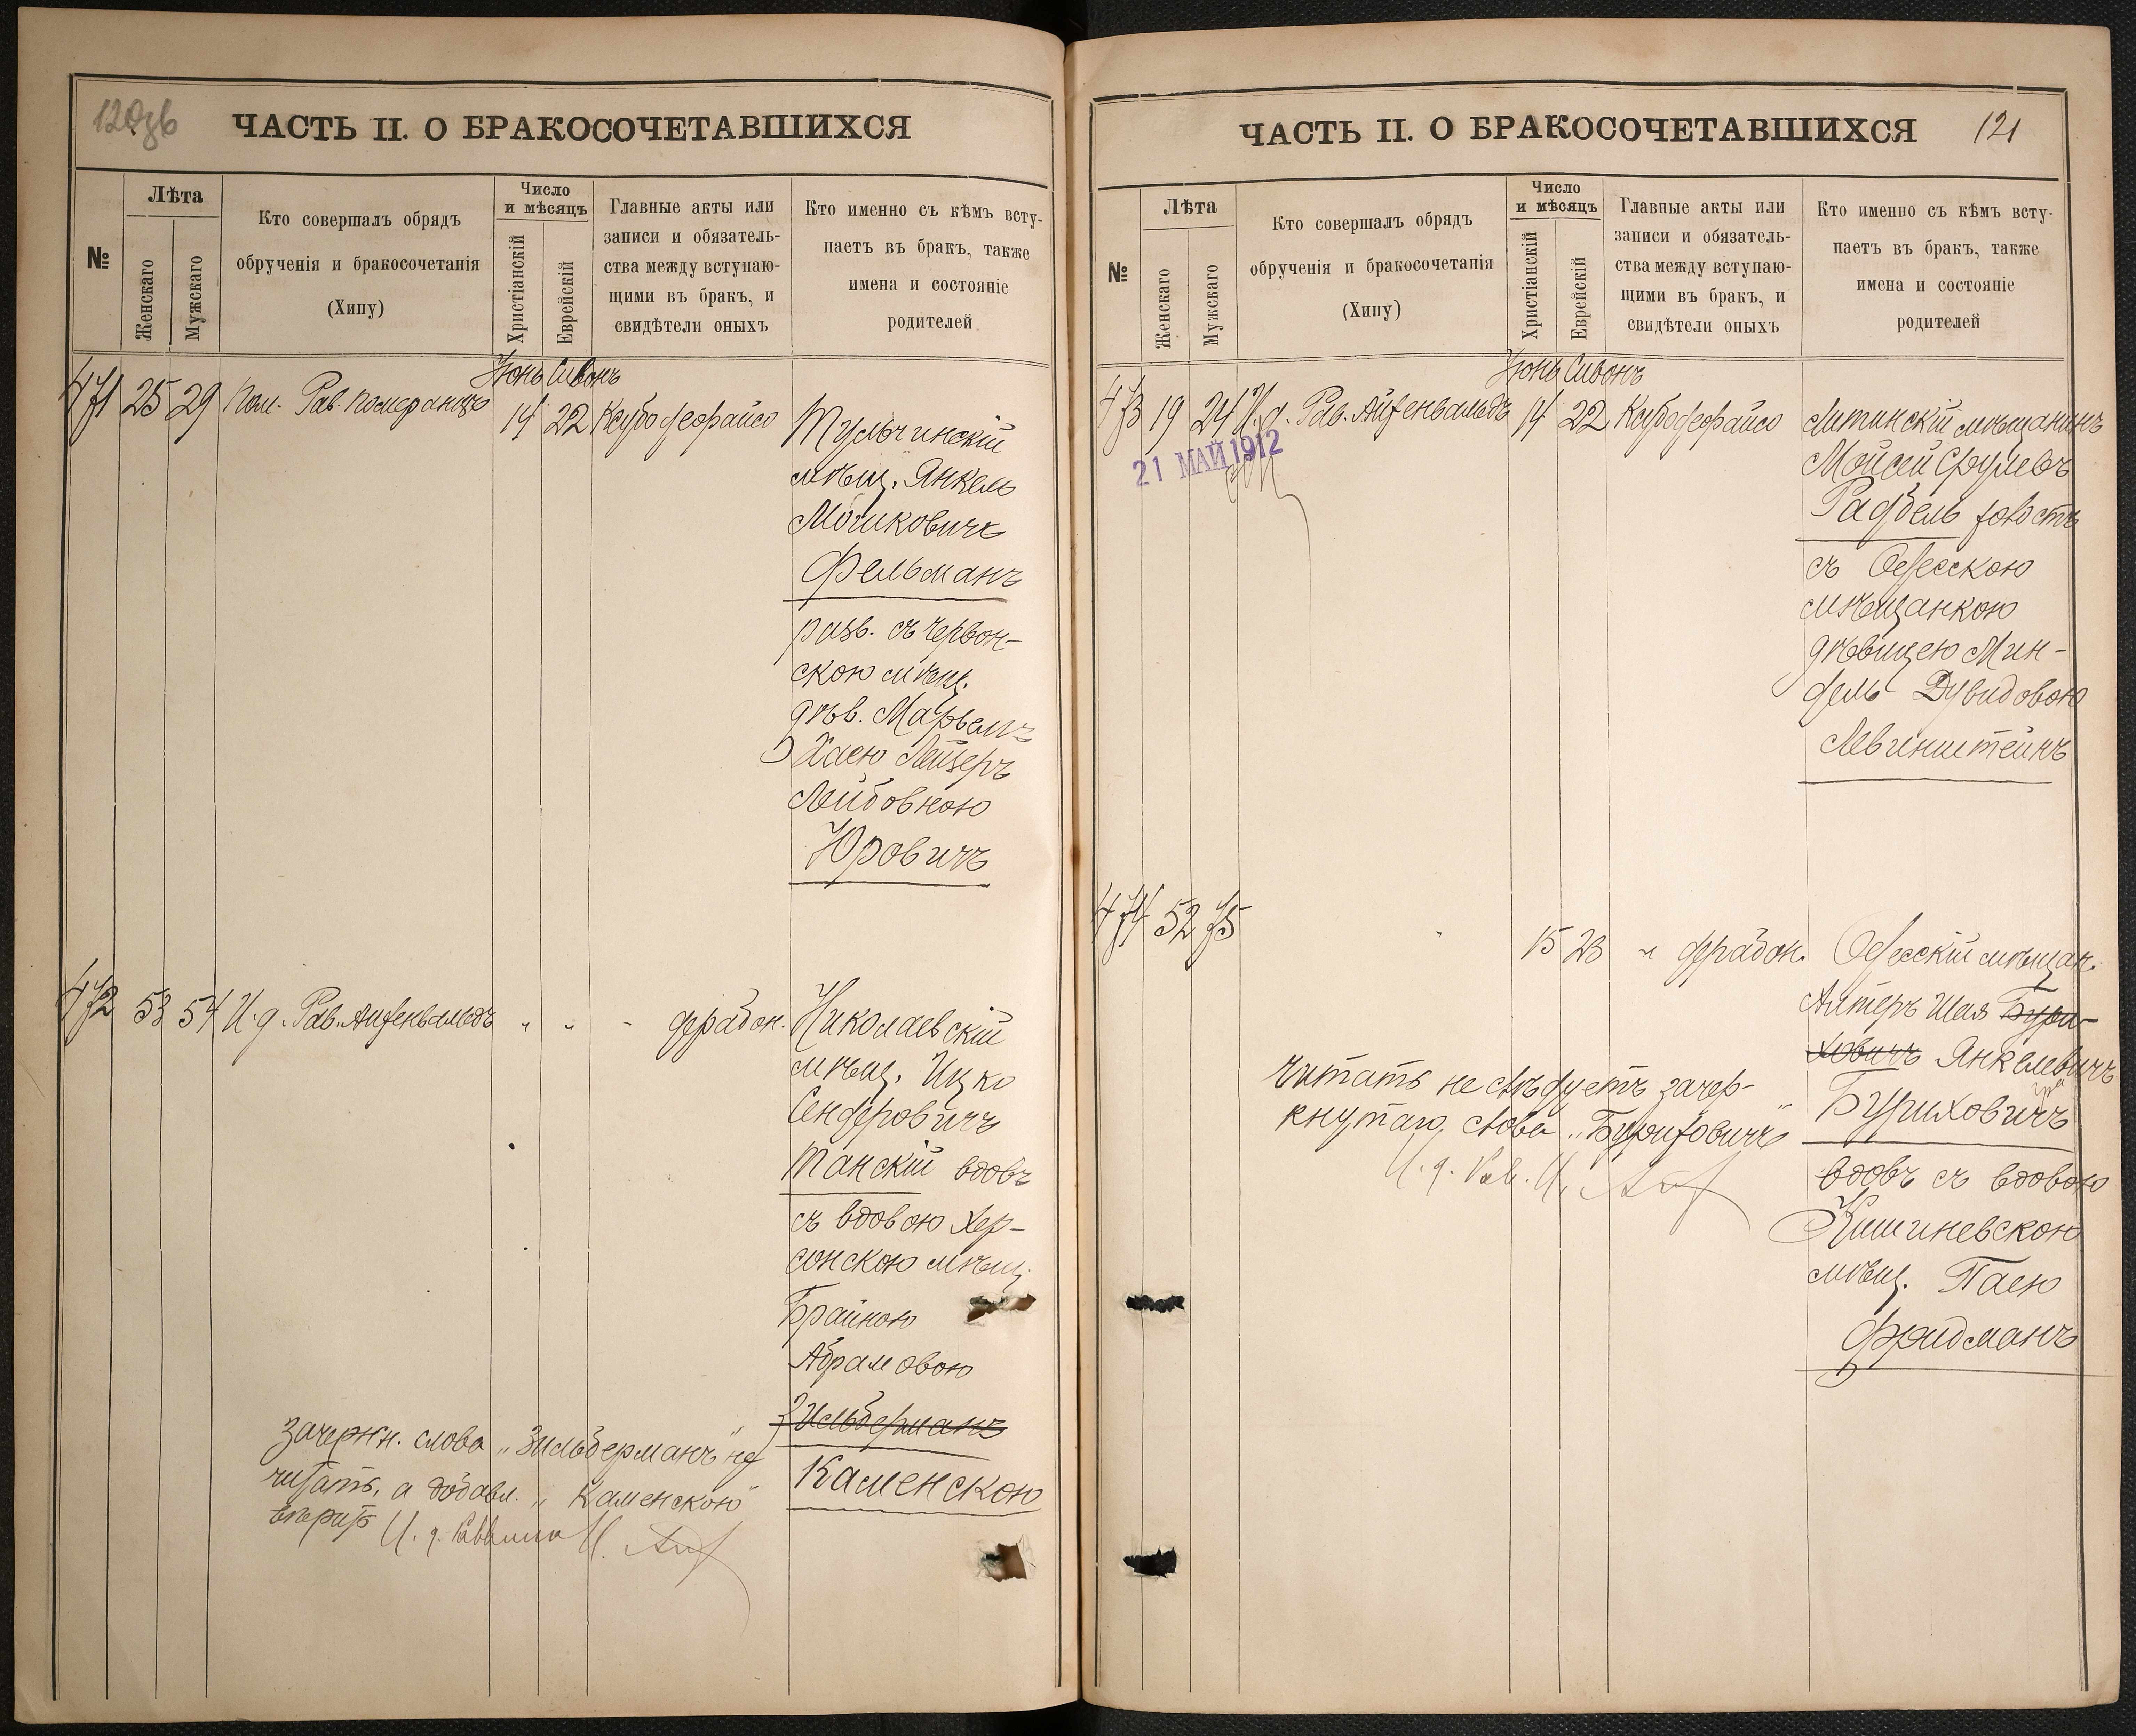 ЧАСТЬ II. О БРАКОСОЧЕТАВШИХСЯ
№
Лѣта
Женскаго
Мужскаго
Кто совершалъ обрядъ
обрученія и бракосочетанія
(Хипу)
Число
и мѣсяцъ
Христіанскій
Еврейскій
Главные акты или
записи и обязатель-
ства между вступаю-
щими въ бракъ, и
свидѣтели оныхъ
Кто именно съ кѣмъ всту-
паетъ въ бракъ, также
имена и состояніе
родителей
Іюнь Сивонъ
471 25 29 Пом. Рав. Померанцъ 14 22
Тульчинскій
мѣщ. Янкель
Мошковичъ
Фельманъ
разв. съ Червон-
скою мѣщ.
дѣв. Марьемъ
Хаею Лейзеръ
Лейбовною
Юровичъ
472 53 54 И. д. Рав. Айзенвальдъ " " " держадок.
Николаевскій
мѣщ. Ицко
Сендеровичъ
Танскій вдовъ
съ вдовою Хер-
сонскою мѣщ.
Брайною
Абрамовою
Зильберманъ
Каменскою
Зачеркн. слова „Зильберманъ" не
читать, а добавл. „Каменскою"
вѣрить
И. д. Раввина И.
ЧАСТЬ II. О БРАКОСОЧЕТАВШИХСЯ 121
№
Лѣта
Женскаго
Мужскаго
Кто совершалъ обрядъ
обрученія и бракосочетанія
(Хипу)
Число
и мѣсяцъ
Христіанскій
Еврейскій
Главные акты или
записи и обязатель-
ства между вступаю-
щими въ бракъ, и
свидѣтели оныхъ
Кто именно съ кѣмъ всту-
паетъ въ бракъ, также
имена и состояніе
родителей
Іюнь Сивонъ
473 19 24 И. д. Рав. Айзенвальдъ 14 22
21 МАЙ 1912
Литинскій мѣщанинъ
Мойсей Срулевъ
холостъ
съ Одесскою
мѣщанкою
дѣвицею Мин-
дель Дувидовою
Левинштейнъ
474 52 75 15 23 "
Одесскій мѣщан.
Алтеръ Шая Бури-
ховичъ Янкелевичъ
Буриховичъ
вдовъ съ вдовою
Кишиневскою
мѣщ. Паею
Фридманъ
Читать не слѣдуетъ зачер-
кнутаго слова „Буриховичъ"
И. д. Рав. И.